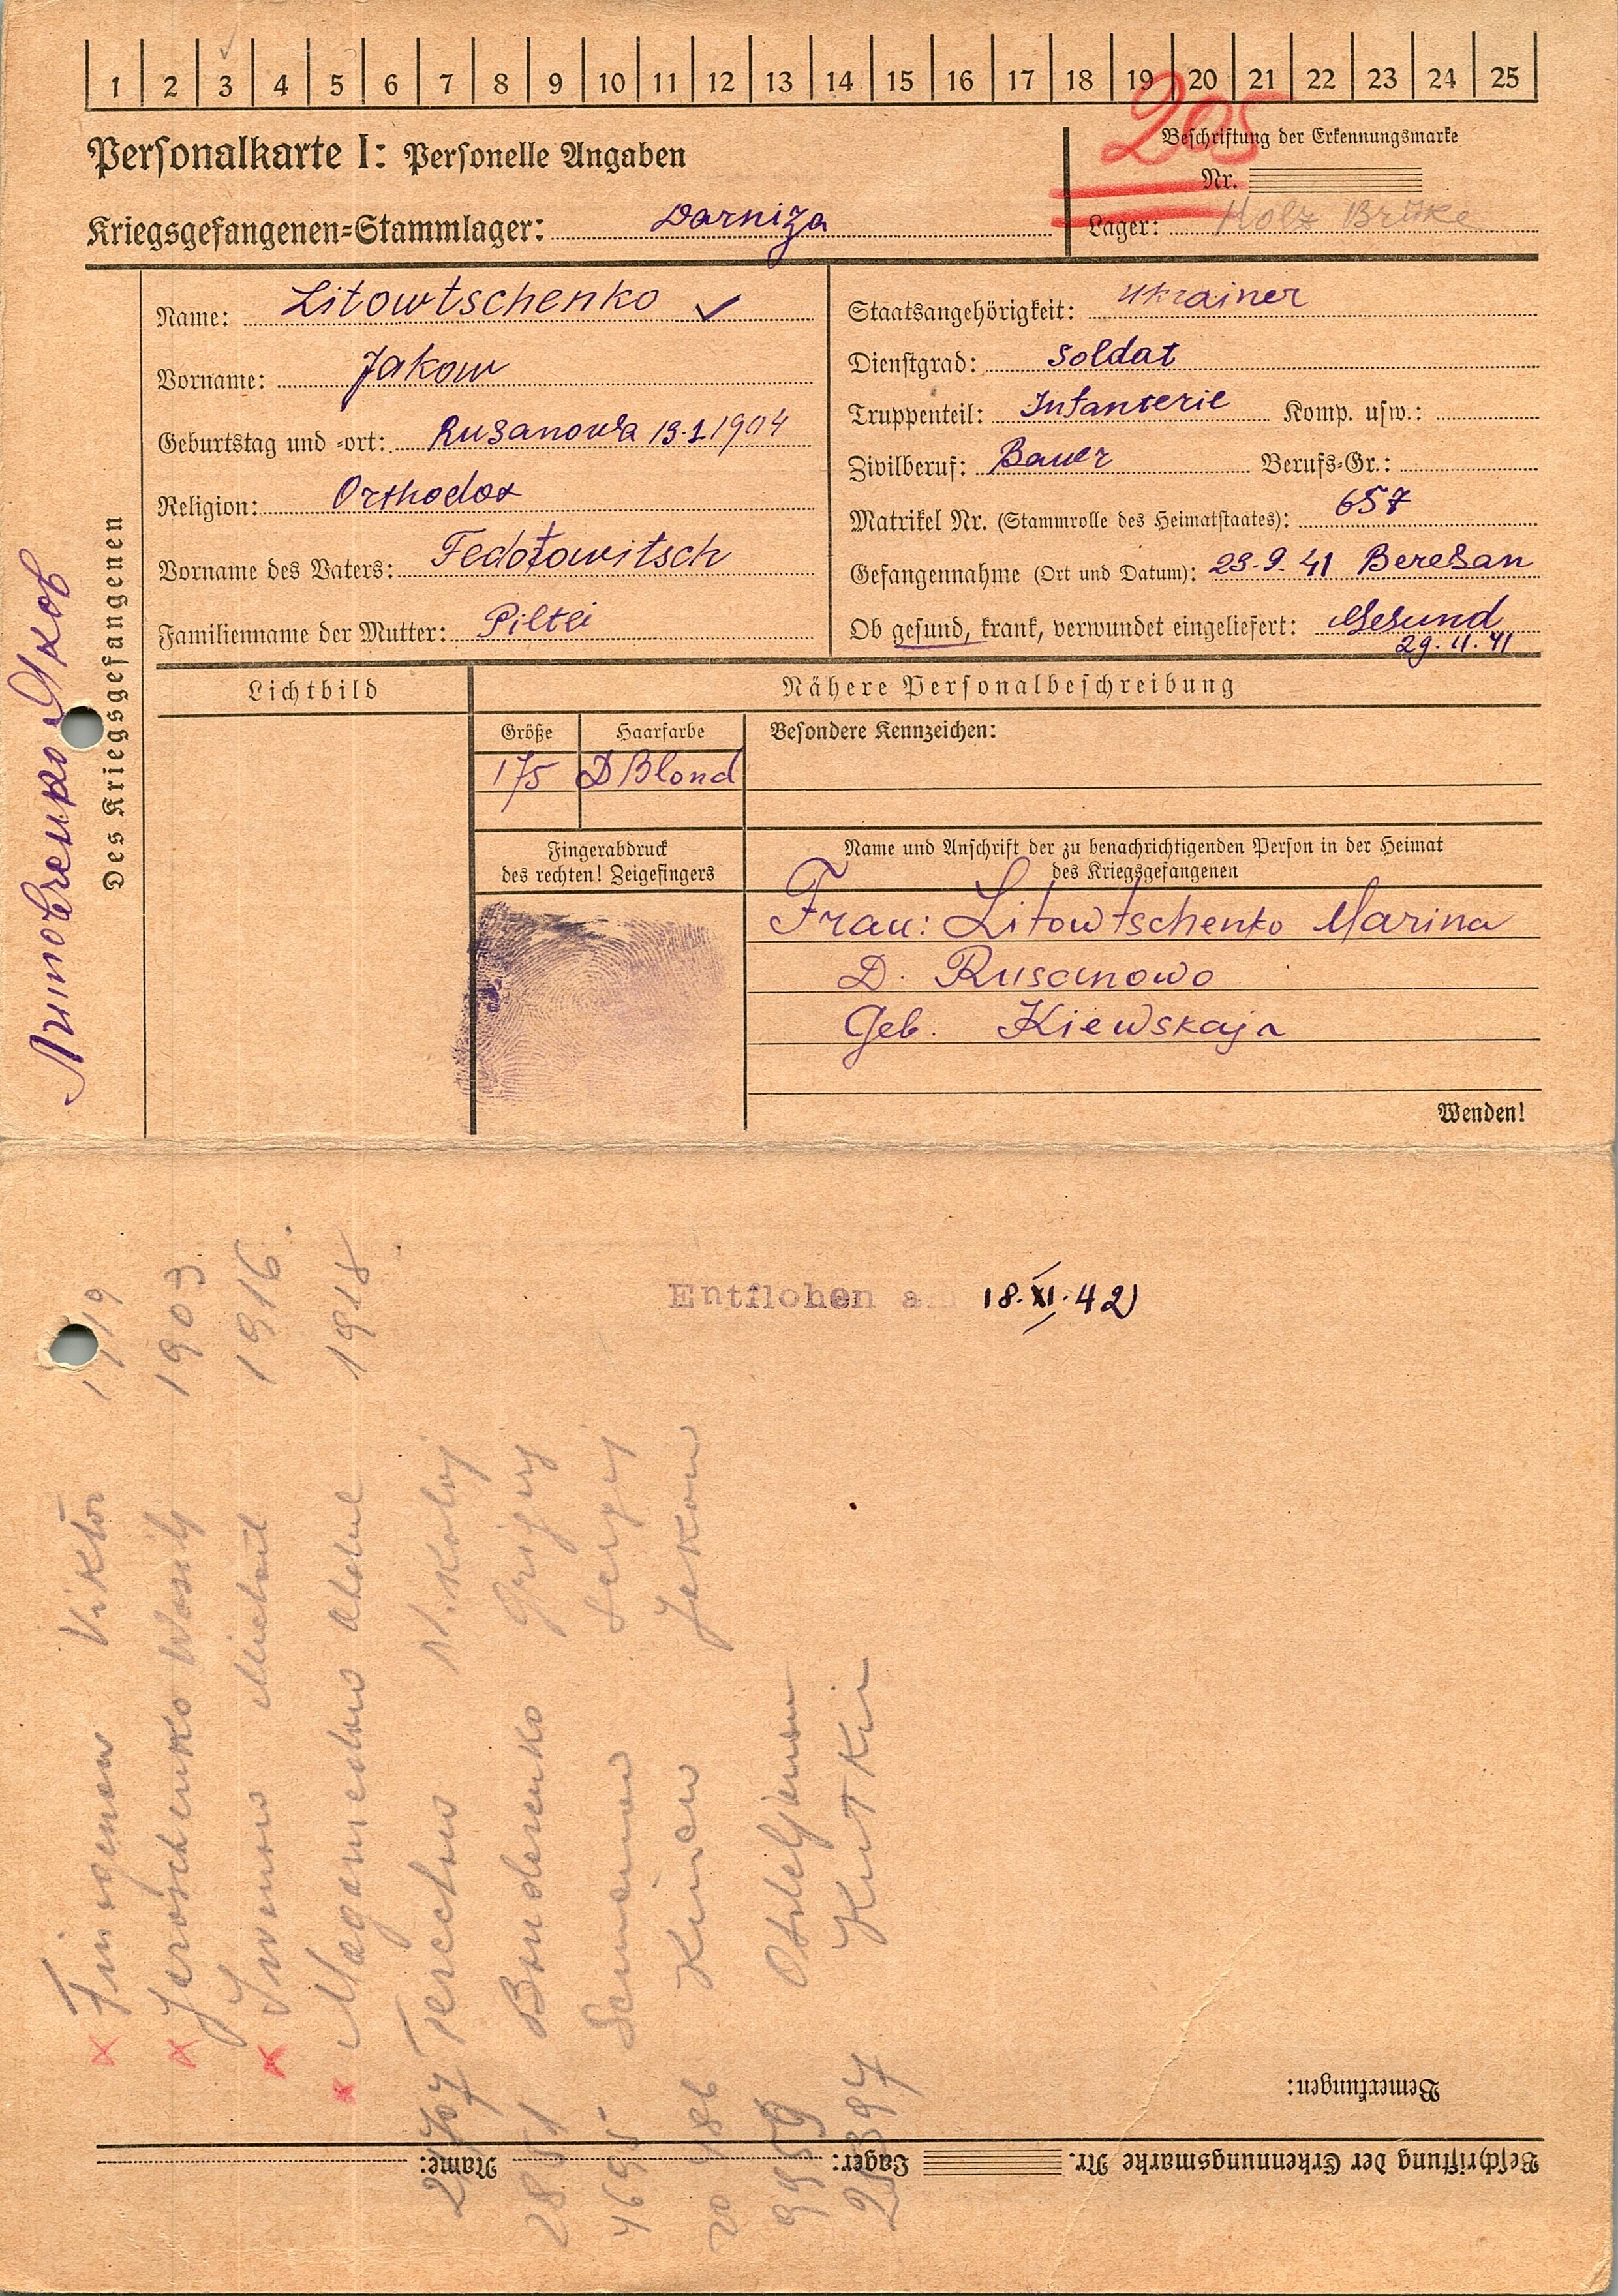 1 2 3 4 5 6 7 8 9 10 11 12 13 14 15 16 17 18 19 20 21 22 23 24 25
205
Personalkarte I: Personelle Angaben
Beschriftung der Erkennungsmarke
Nr.
Kriegsgefangenen-Stammlager: Darniza
Lager: Holz Brüke
Des Kriegsgefangenen
Литовченко Яков
Name: Litowtschenko
Vorname: Jakow
Geburtstag und -ort: Rusanowa 13.1 1904
Religion: Orthodox
Vorname des Vaters: Fedotowitsch
Familienname der Mutter:
Staatsangehörigkeit: Ukrainer
Dienstgrad: Soldat
Truppenteil: Infanterie Komp. usw.:
Zivilberuf: Bauer Berufs-Gr.:
Matrikel Nr. (Stammrolle des Heimatstaates): 657
Gefangennahme (Ort und Datum): 23.9.41 Beresan
Ob gesund, krank, verwundet eingeliefert: Gesund
29.11.41
Lichtbild
Nähere Personalbeschreibung
Größe
175
Haarfarbe
D Blond
Besondere Kennzeichen:
Fingerabdruck
des rechten! Zeigefingers
Name und Anschrift der zu benachrichtigenden Person in der Heimat
des Kriegsgefangenen
Frau: Litowtschenko Marina
D. Rusanowo
Geb. Kiewskaja
Wenden!
Entflohen am 18.XI.42
Viktor 1919
Jeroschenko Wasily 1903
Michail 1916
1918
Nikolaj
Bondarenko Grigory
Sergej
Jakow
Kutkin
Bemerkungen:
Beschriftung der Erkennungsmarke Nr.
Lager:
Name: